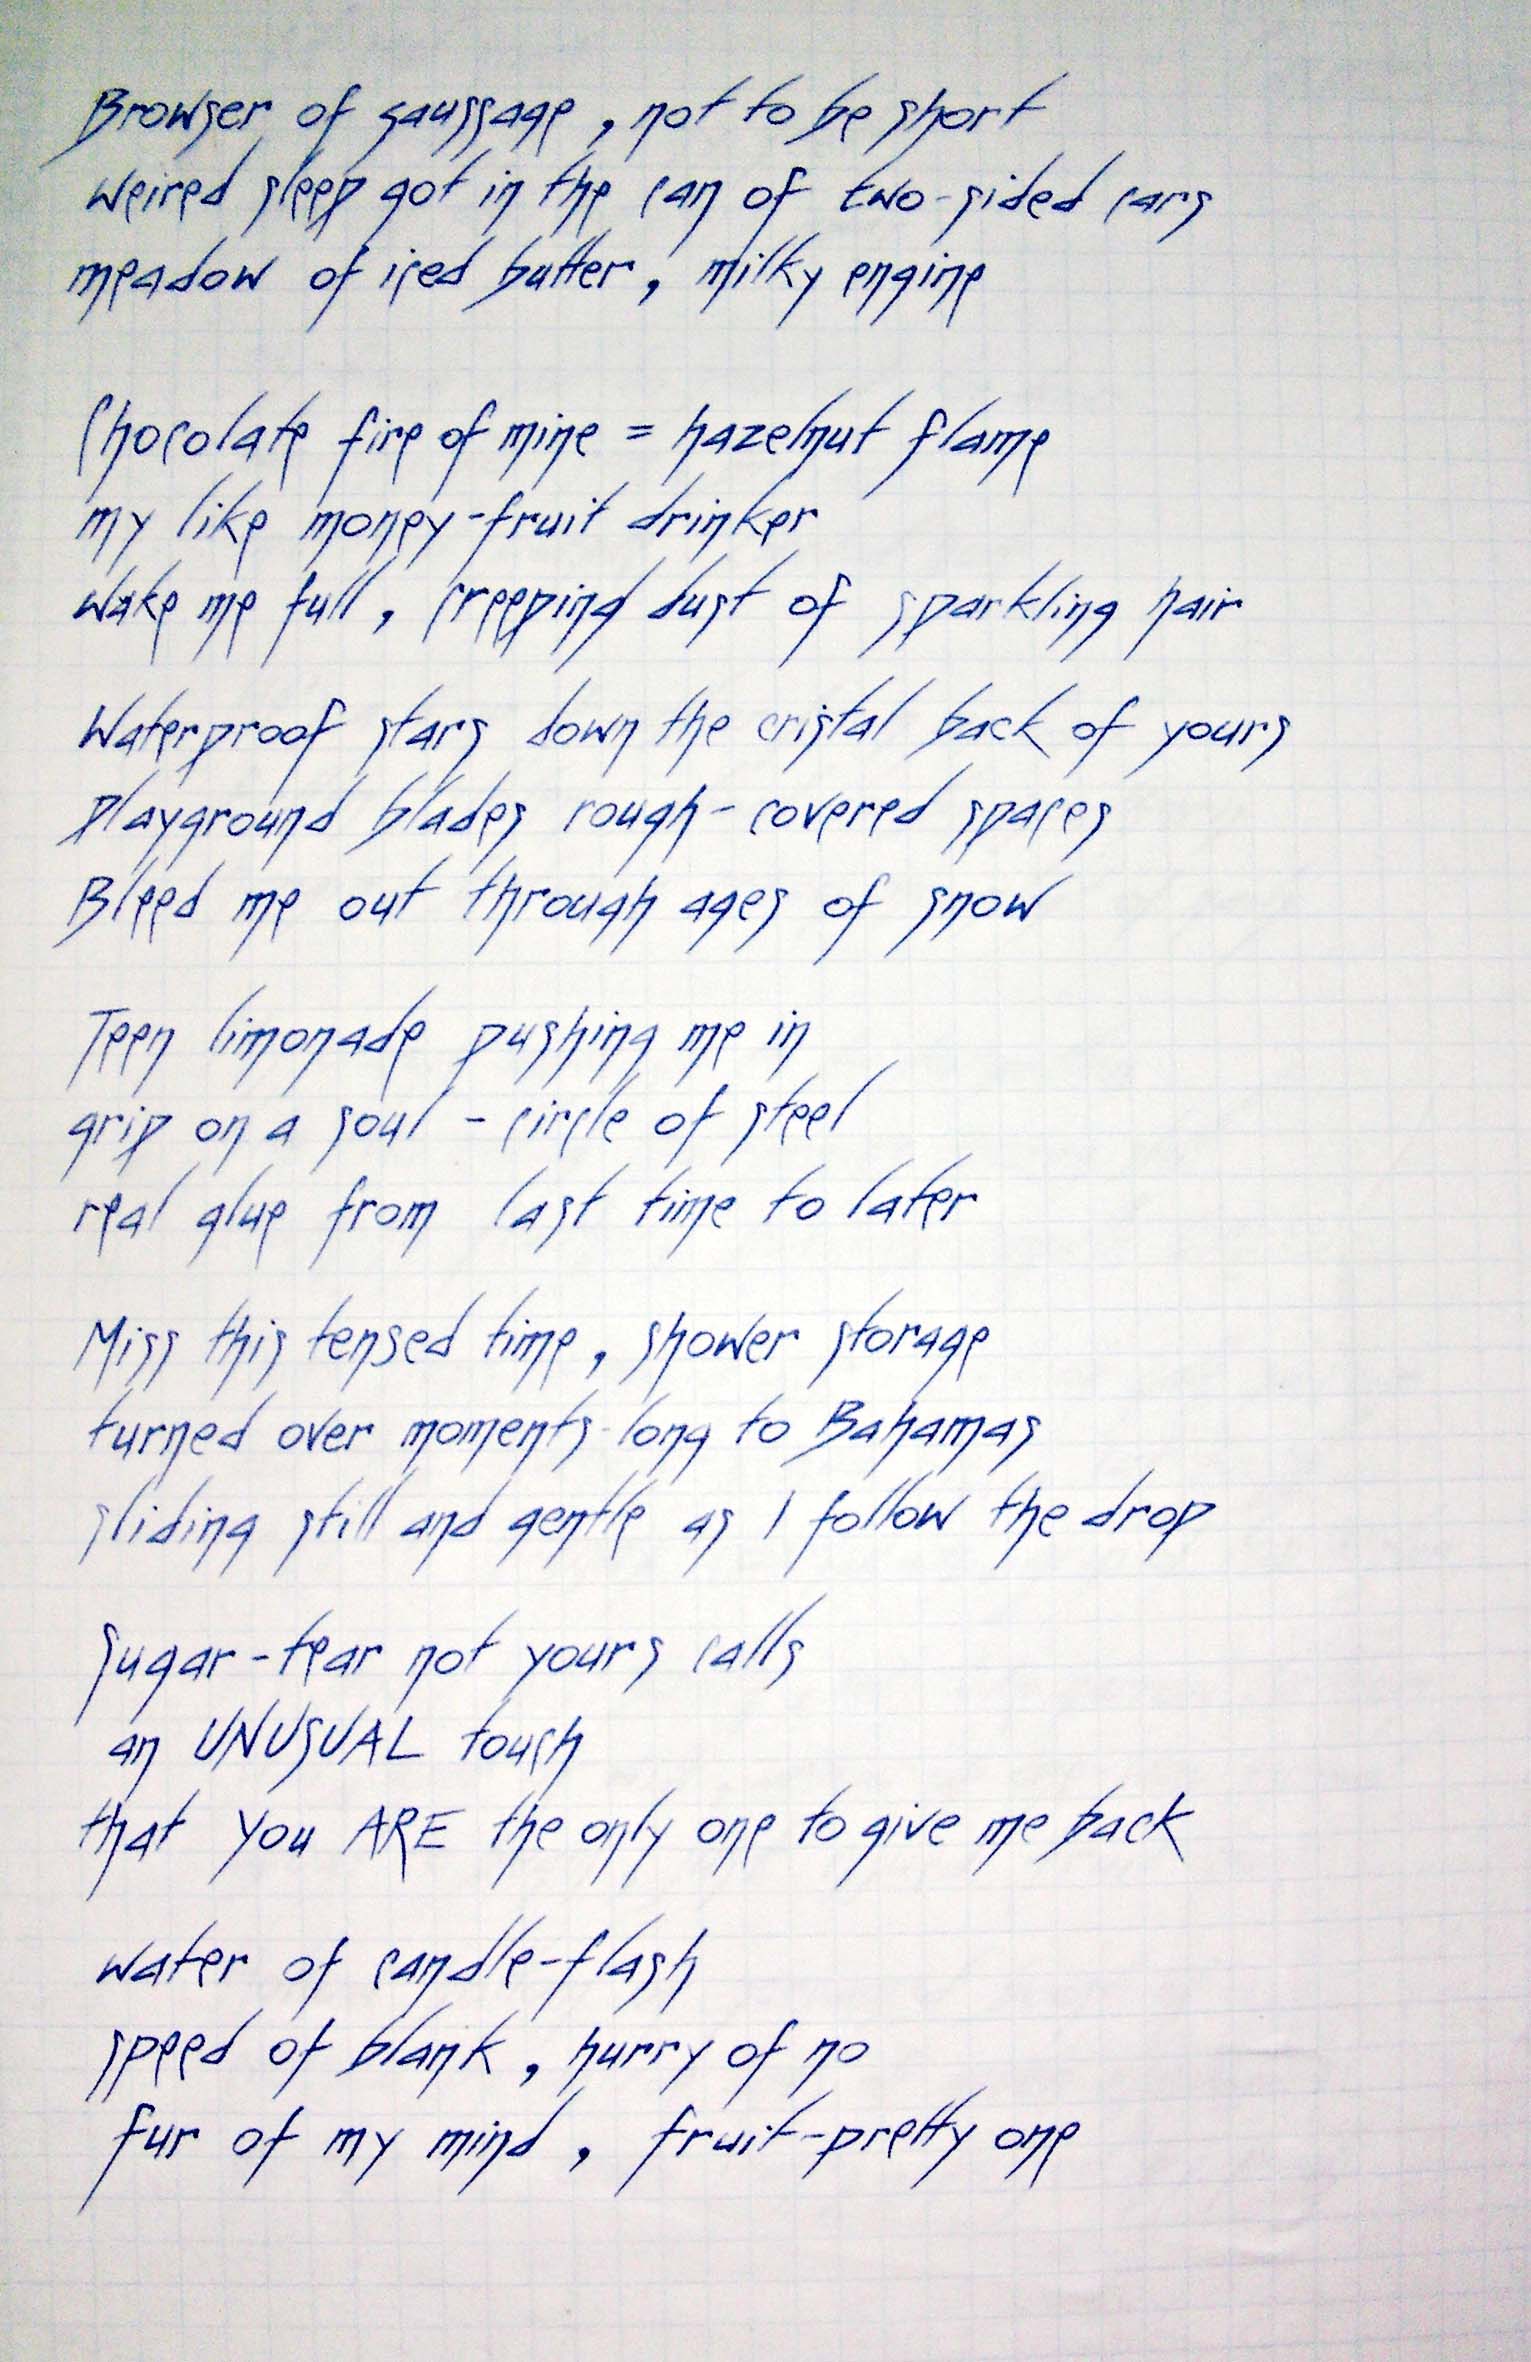 Browser of saussage, not to be short
weired sleep got in the can of two-sided cars
meadow of iced butter, milky engine
Chocolate fire of mine = hazelnut flame
my like money-fruit drinker
wake me full, creeping dust of sparkling hair
Waterproof stars down the cristal back of yours
playground blades rough-covered spaces
Bleed me out through ages of snow
Teen limonade pushing me in
grip on a soul - circle of steel
real glue from last time to later
Miss this tensed time, shower storage
turned over moments-long to Bahamas
sliding still and gentle as I follow the drop
Sugar-tear not yours calls
an UNUSUAL touch
that you ARE the only one to give me back
water of candle-flash
speed of blank, hurry of no
fur of my mind, fruit-pretty one